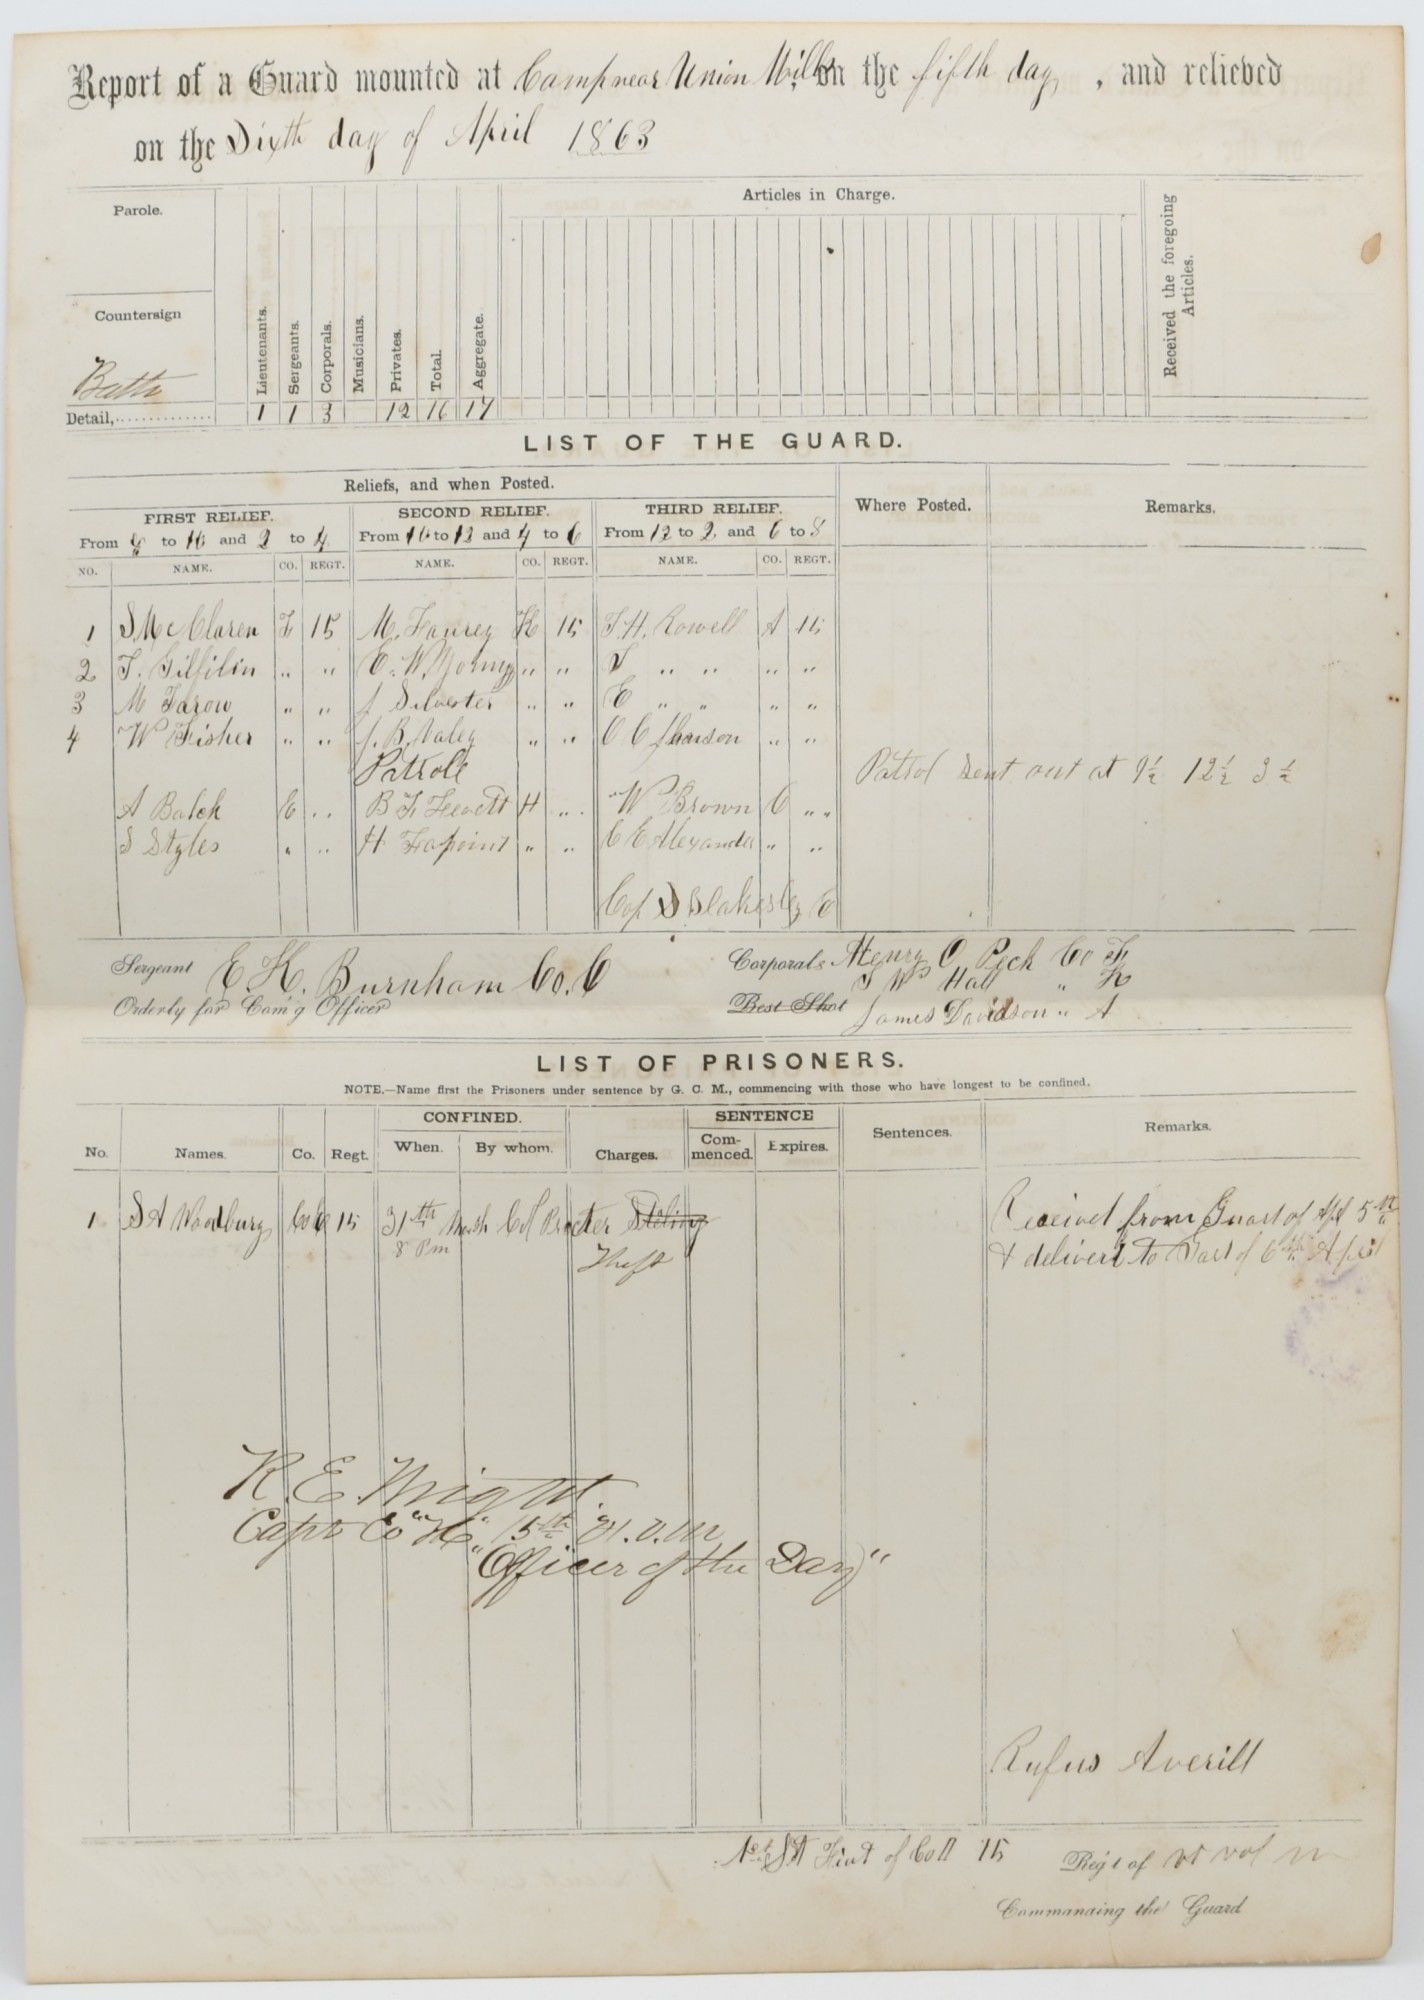 Report of a Guard mounted at Camp near Union Mills on the fifth day , and relieved
on the Sixth day of April 1863
Parole.
Articles in Charge.
Received the foregoing Articles.
Countersign
Lieutenants. Sergeants. Corporals. Musicians. Privates. Total. Aggregate.
Detail, 1 1 3 12 16 17
LIST OF THE GUARD.
Reliefs, and when Posted. Where Posted. Remarks.
FIRST RELIEF. SECOND RELIEF. THIRD RELIEF.
From 8 to 10 and 2 to 4 From 10 to 12 and 4 to 6 From 12 to 2 and 6 to 8
NO. NAME. CO. REGT. NAME. CO. REGT. NAME. CO. REGT.
1 S McClaren F 15 M. K 15 F. H. Rowell A 15
2 F. Gilfilin " " E. W. Young " " " " " "
3 M " " J Silvester " " E " " " "
4 W Fisher " " J. B. " " C C " "
Patroll
Patrol sent out at 9½ 12½ 3½
A Balch E " B F H " W Brown C "
S Styles " " H Lapoint " " C E Alexander " "
Cop S Blakesley E
Sergeant E. H. Burnham Co. C Corporals Henry O Peck Co F
Orderly for Com'g Officer
W Hall " K
Best Shot James Davidson " A
LIST OF PRISONERS.
NOTE.—Name first the Prisoners under sentence by G. C. M., commencing with those who have longest to be confined.
CONFINED. SENTENCE
No. Names. Co. Regt. When. By whom. Charges. Commenced. Expires. Sentences. Remarks.
1 S A Woodbury Co C 15 31th Col Procter Steling Received from Guard of Apl 5th
8 Pm Theft & deliverd to Gard of 6th April
R. E. Wright.
Capt Co "H" 15th
"Officer of the Day"
Rufus Averill
Lieut of Co 15 Reg't of vt vol
Commanding the Guard